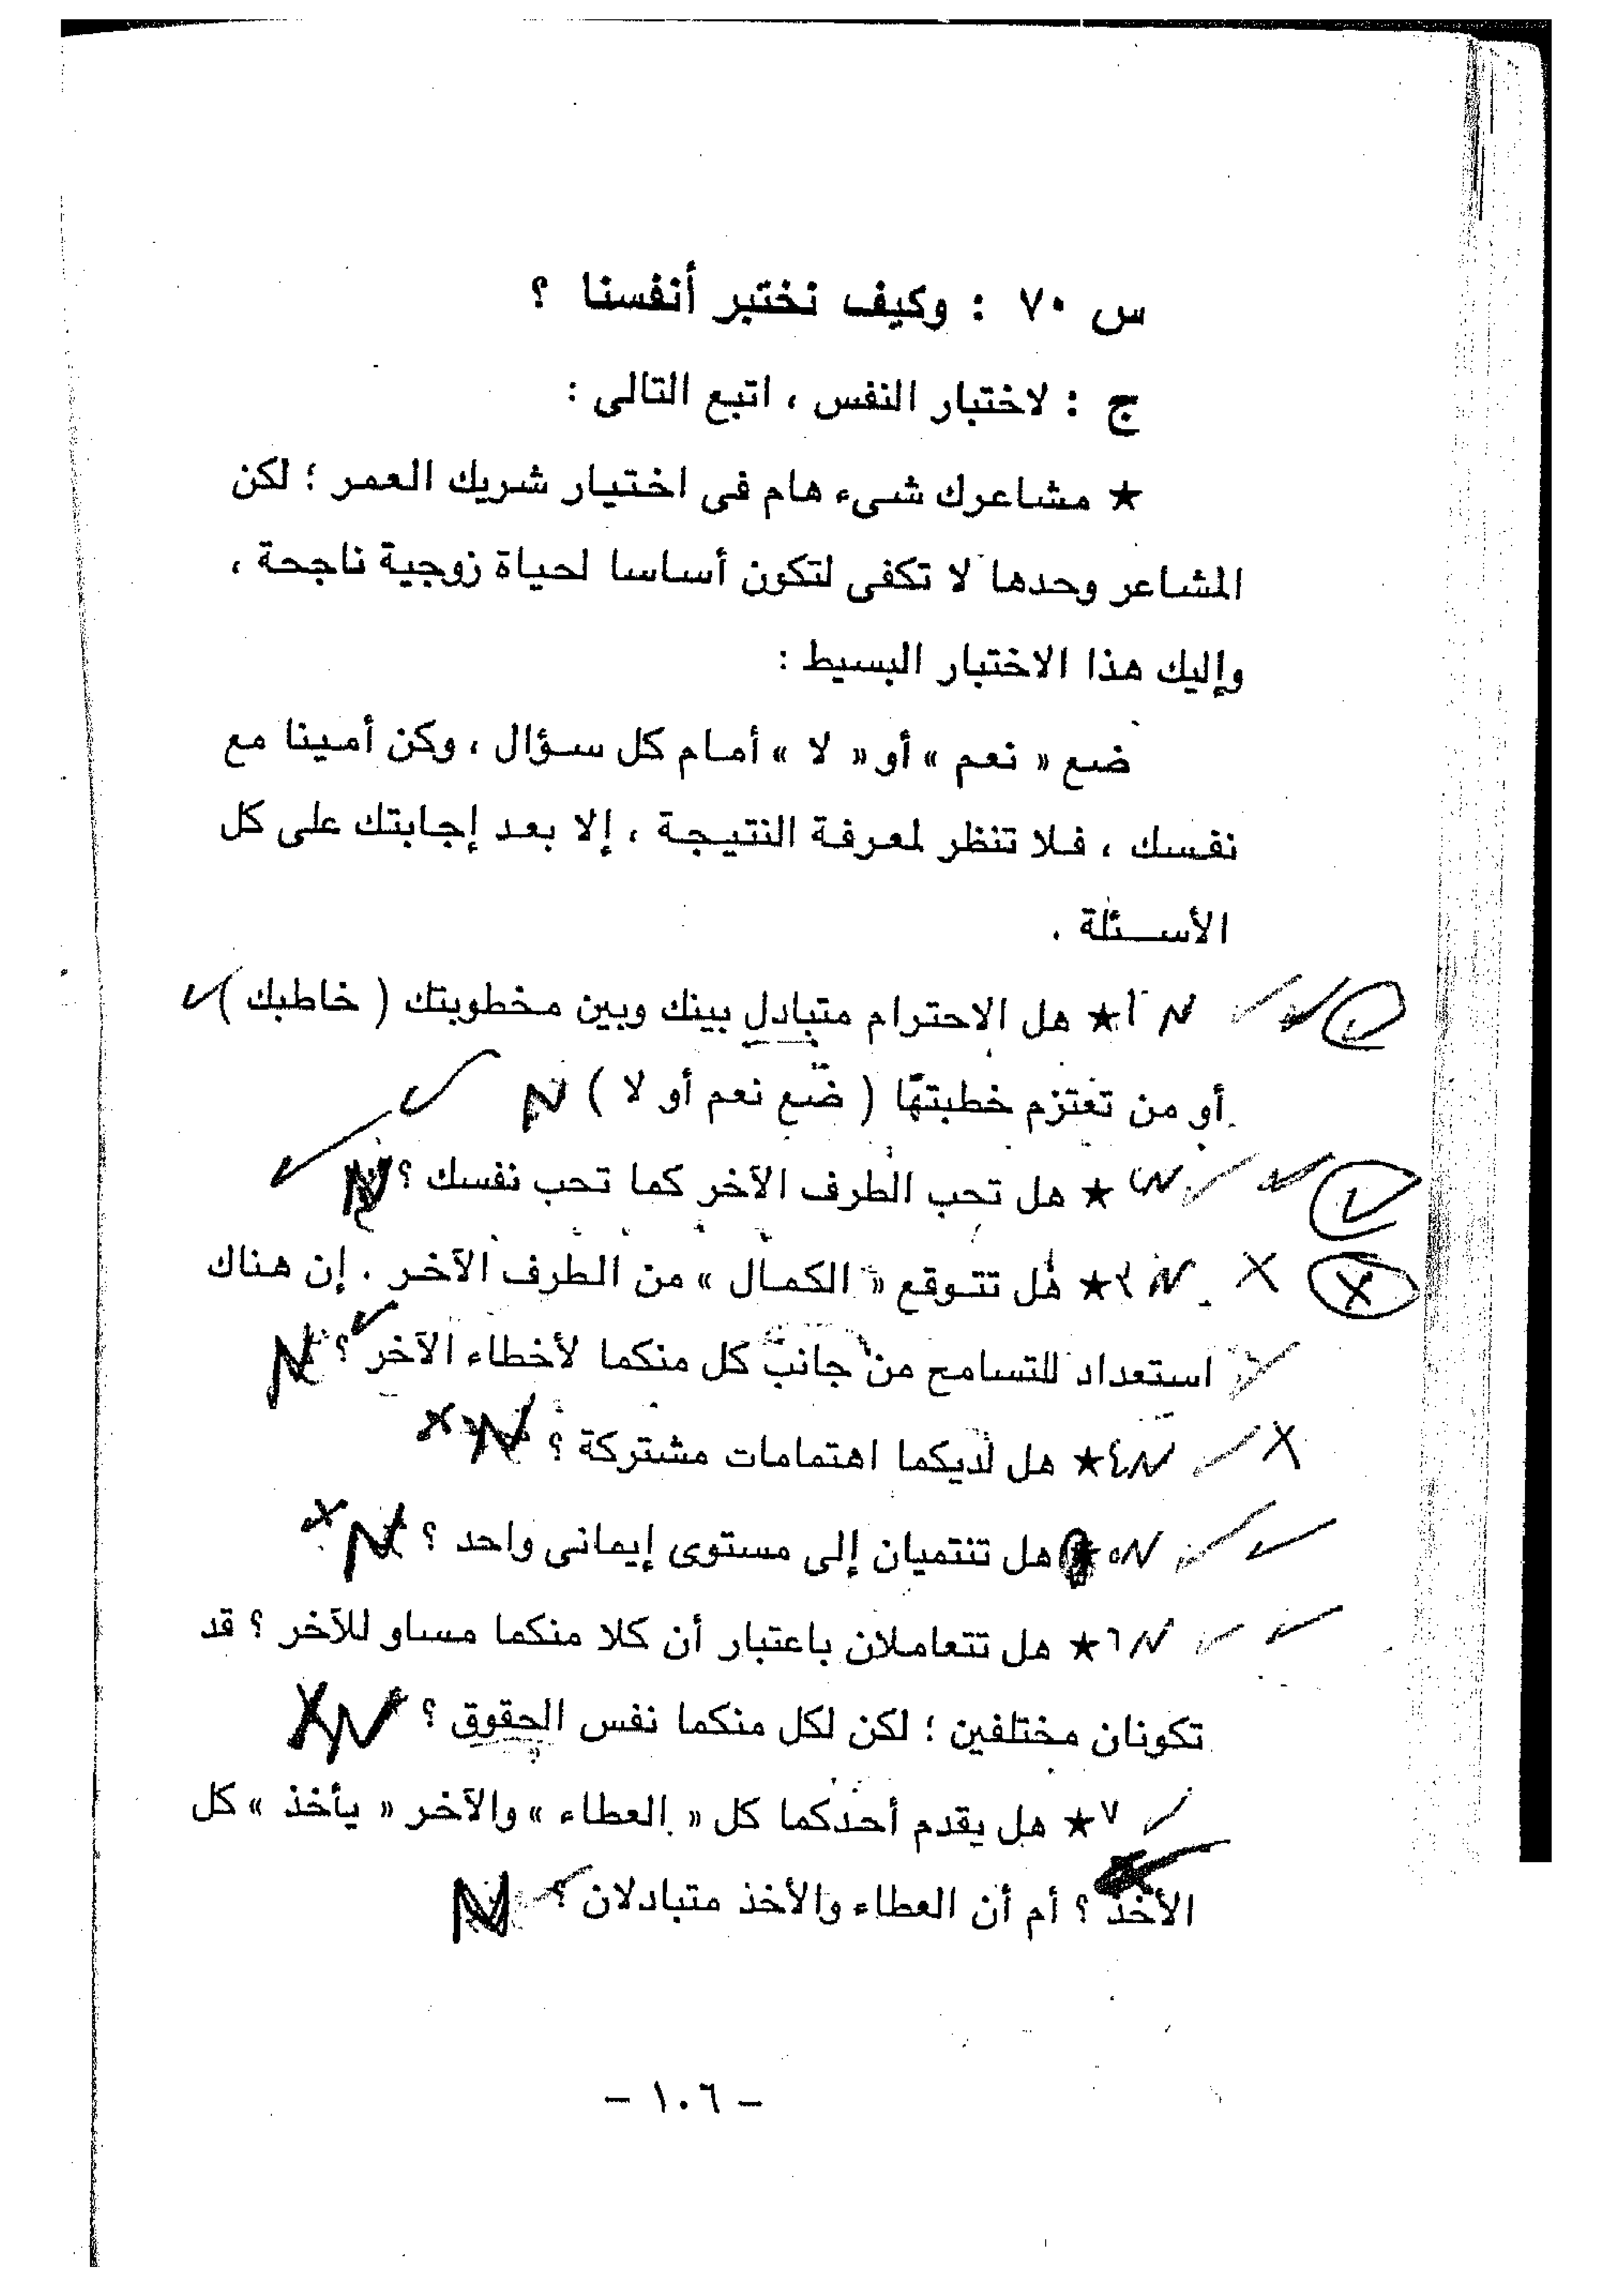 س ٧٠ : وكيف نختبر أنفسنا ؟
ج : لاختبار النفس ، اتبع التالى :
★ مشاعرك شىء هام فى اختيار شريك العمر ؛ لكن
المشاعر وحدها لا تكفى لتكون أساسا لحياة زوجية ناجحة ،
وإليك هذا الاختبار البسيط :
ضع « نعم » أو « لا » أمام كل سؤال ، وكن أمينا مع
نفسك ، فلا تنظر لمعرفة النتيجة ، إلا بعد إجابتك على كل
الأسئلة .
✓ ✓ ✓ N ١★ هل الاحترام متبادل بينك وبين مخطوبتك ( خاطبك ) ✓
أو من تعتزم خطبتها ( ضع نعم أو لا ) N ✓
✓ ✓ ✓ N ٢★ هل تحب الطرف الآخر كما تحب نفسك ؟ N ✓
X X N ٣★ هل تتوقع « الكمال » من الطرف الآخر . إن هناك
✓ استعداد للتسامح من جانب كل منكما لأخطاء الآخر ؟ ✓ N
X ✓ N ٤★ هل لديكما اهتمامات مشتركة ؟ N X
✓ ✓ N ٥★ هل تنتميان إلى مستوى إيمانى واحد ؟ N X
✓ ✓ N ٦★ هل تتعاملان باعتبار أن كلا منكما مساو للآخر ؟ قد
تكونان مختلفين ؛ لكن لكل منكما نفس الحقوق ؟ N X
✓ ٧★ هل يقدم أحدكما كل « العطاء » والآخر « يأخذ » كل
الأخذ ؟ أم أن العطاء والأخذ متبادلان ؟ ✓ N
– ١٠٦ –